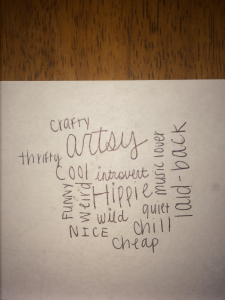 crafty
artsy
thrifty
cool
introvert
music lover
laid-back
Funny
weird
Hippie
wild
quiet
NICE
chill
cheap